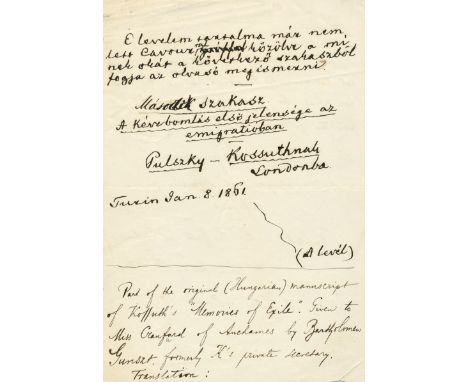 E levelem tartalma már nem
lett Cavour gróffal közölve a mi
nek okát a következő szakaszból
fogja az olvasó megismerni.
Második szakasz
A kévebomlás első jelensége az
emigratioban
Pulszky – Kossuthnak
Londonba
Turin Jan 8. 1861
(A levél)
Part of the original (Hungarian) manuscript
of Kossuth's "Memories of Exile". Given to
Miss Cranford of Auchames by Bartholomew
Gunszt, formerly K's private secretary.
Translation: